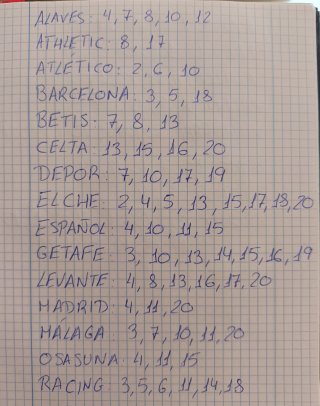 ALAVES: 4, 7, 8, 10, 12
ATHLETIC: 8, 17
ATLÉTICO: 2, 6, 10
BARCELONA: 3, 5, 18
BETIS: 7, 8, 13
CELTA: 13, 15, 16, 20
DEPOR: 7, 10, 17, 19
ELCHE: 2, 4, 5, 13, 15, 17, 18, 20
ESPAÑOL: 4, 10, 11, 15
GETAFE: 3, 10, 13, 14, 15, 16, 19
LEVANTE: 4, 8, 13, 16, 17, 20
MADRID: 4, 11, 20
MÁLAGA: 3, 7, 10, 11, 20
OSASUNA: 4, 11, 15
RACING: 3, 5, 6, 11, 14, 18